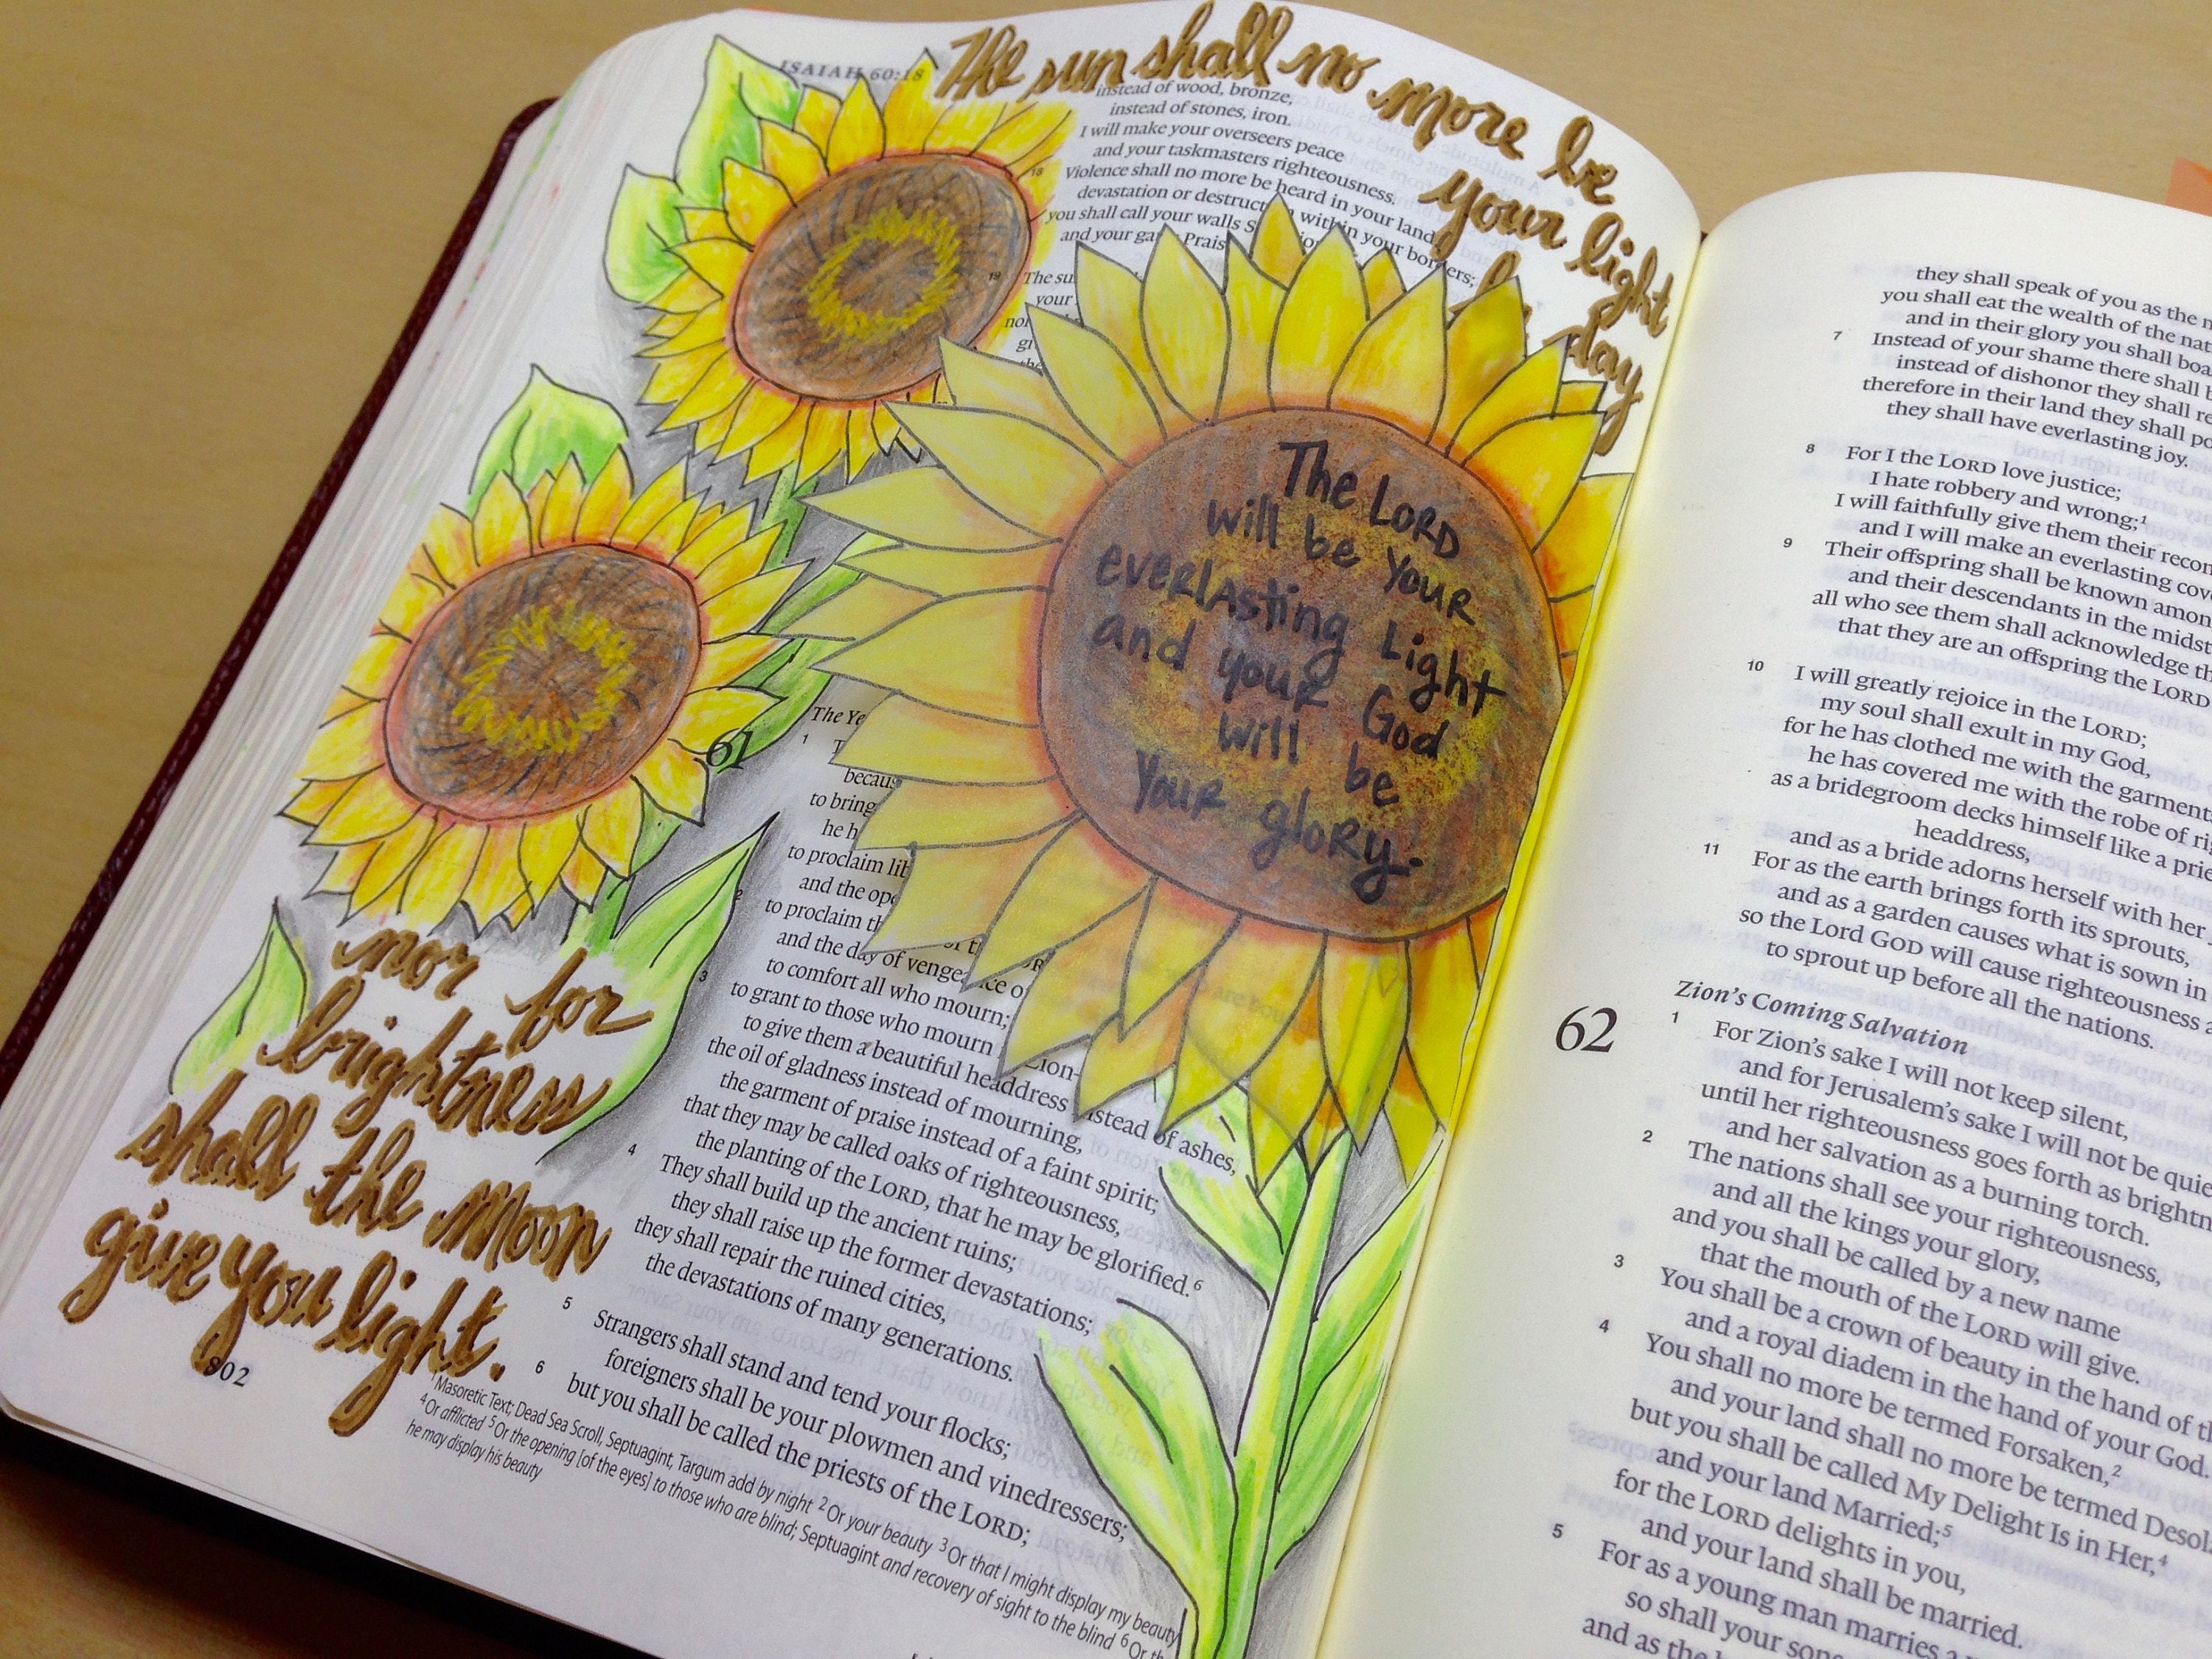 ISAIAH 60:18
The sun shall no more be
your light
by day
instead of wood, bronze,
instead of stones, iron.
I will make your overseers peace
and your taskmasters righteousness.
18 Violence shall no more be heard in your land,
devastation or destruct within your borders;
you shall call your walls S
and your ga Prais
19 The su
your
nor
gi
the
The LORD
will be your
everlasting Light
and your God
will be
your glory.
61
The Ye
1 T
becaus
to bring
he h
to proclaim lib
and the ope
2 to proclaim th
and the day of vengeance o
to comfort all who mourn;
3 to grant to those who mourn Zion—
to give them a beautiful headdress instead of ashes,
the oil of gladness instead of mourning,
the garment of praise instead of a faint spirit;
that they may be called oaks of righteousness,
the planting of the LORD, that he may be glorified.6
4 They shall build up the ancient ruins;
they shall raise up the former devastations;
they shall repair the ruined cities,
the devastations of many generations.
5 Strangers shall stand and tend your flocks;
foreigners shall be your plowmen and vinedressers;
6 but you shall be called the priests of the LORD;
nor for
brightness
shall the moon
give you light.
802
1 Masoretic Text; Dead Sea Scroll, Septuagint, Targum add by night 2 Or your beauty 3 Or that I might display my beauty
4 Or afflicted 5 Or the opening [of the eyes] to those who are blind; Septuagint and recovery of sight to the blind 6 Or th
he may display his beauty
they shall speak of you as the m
you shall eat the wealth of the nat
and in their glory you shall boa
7 Instead of your shame there shall b
instead of dishonor they shall re
therefore in their land they shall po
they shall have everlasting joy.
8 For I the LORD love justice;
I hate robbery and wrong;1
I will faithfully give them their recom
and I will make an everlasting cove
9 Their offspring shall be known amon
and their descendants in the midst
all who see them shall acknowledge th
that they are an offspring the LORD
10 I will greatly rejoice in the LORD;
my soul shall exult in my God,
for he has clothed me with the garments
he has covered me with the robe of rig
as a bridegroom decks himself like a prie
headdress,
and as a bride adorns herself with her
11 For as the earth brings forth its sprouts,
and as a garden causes what is sown in
so the Lord GOD will cause righteousness a
to sprout up before all the nations.
Zion's Coming Salvation
62
1 For Zion's sake I will not keep silent,
and for Jerusalem's sake I will not be quie
until her righteousness goes forth as brightn
and her salvation as a burning torch.
2 The nations shall see your righteousness,
and all the kings your glory,
and you shall be called by a new name
that the mouth of the LORD will give.
3 You shall be a crown of beauty in the hand of th
and a royal diadem in the hand of your God.
4 You shall no more be termed Forsaken,2
and your land shall no more be termed Desola
but you shall be called My Delight Is in Her,4
and your land Married;5
for the LORD delights in you,
and your land shall be married.
5 For as a young man marries a
so shall your sons
and as the b